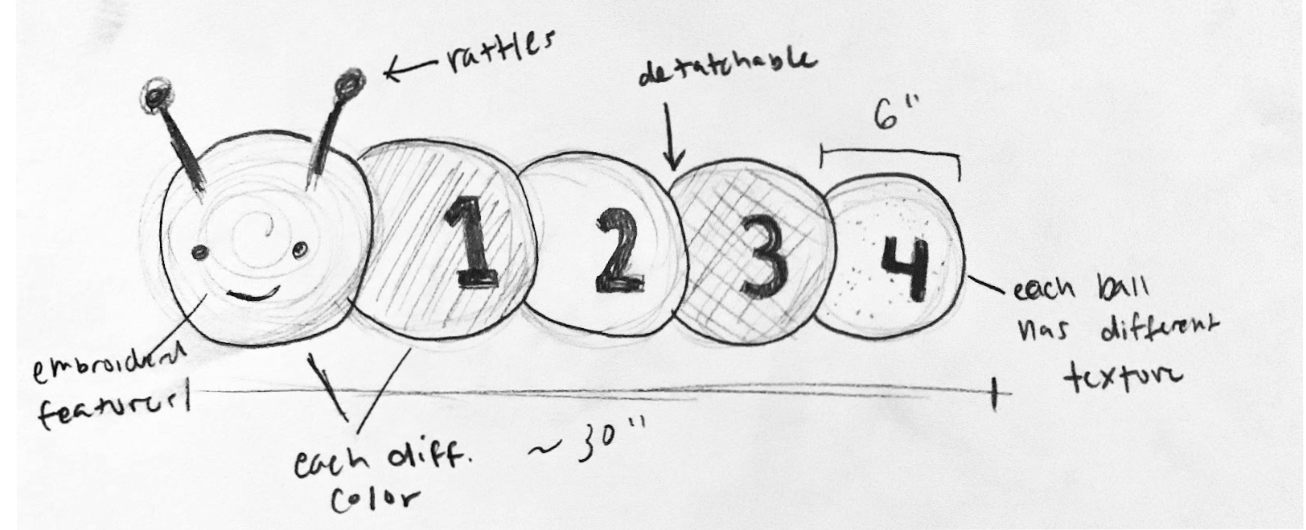 ← rattles
detatchable
6"
1 2 3 4
each ball
has different
texture
embroidered
features
each diff.
color
~ 30"